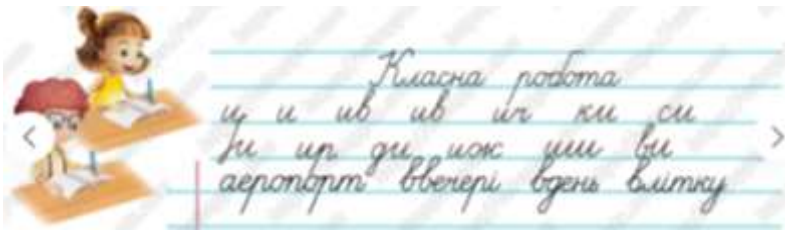 Класна робота
и и ив ив ич ки си
Ји ир ди иж ши ви
аеропорт ввечері вдень влітку